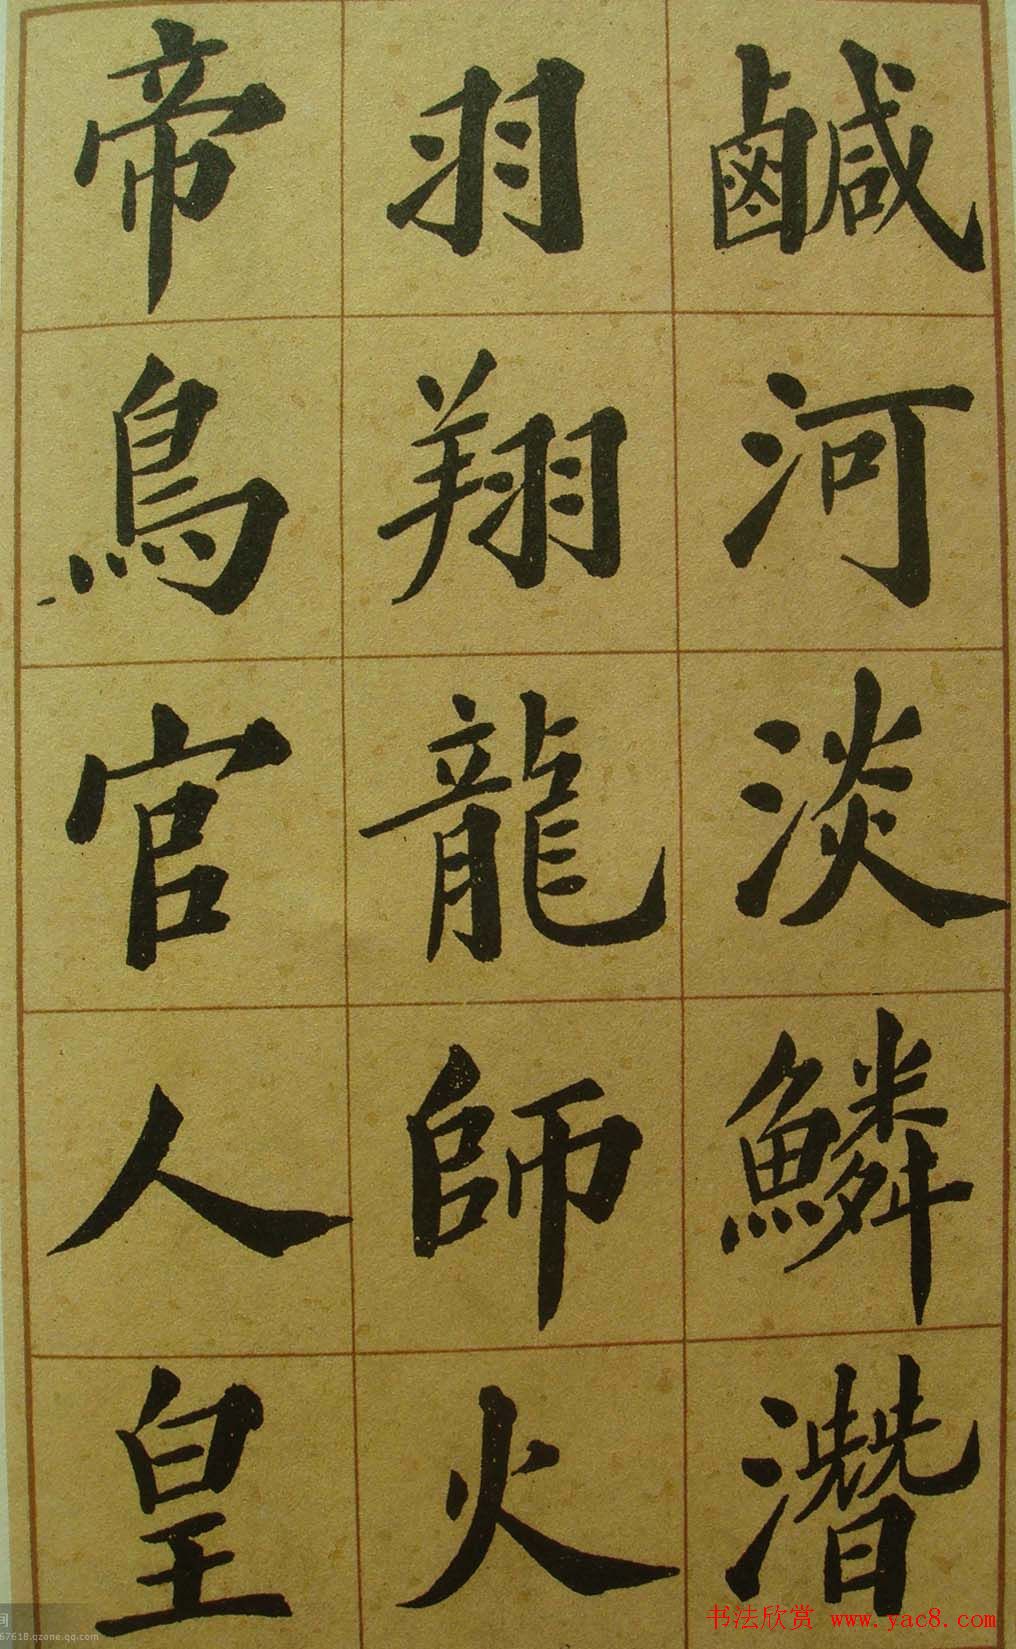 鹹河淡鱗潛
羽翔龍師火
帝鳥官人皇
书法欣赏 www.yac8.com
67618.qzone.qq.com